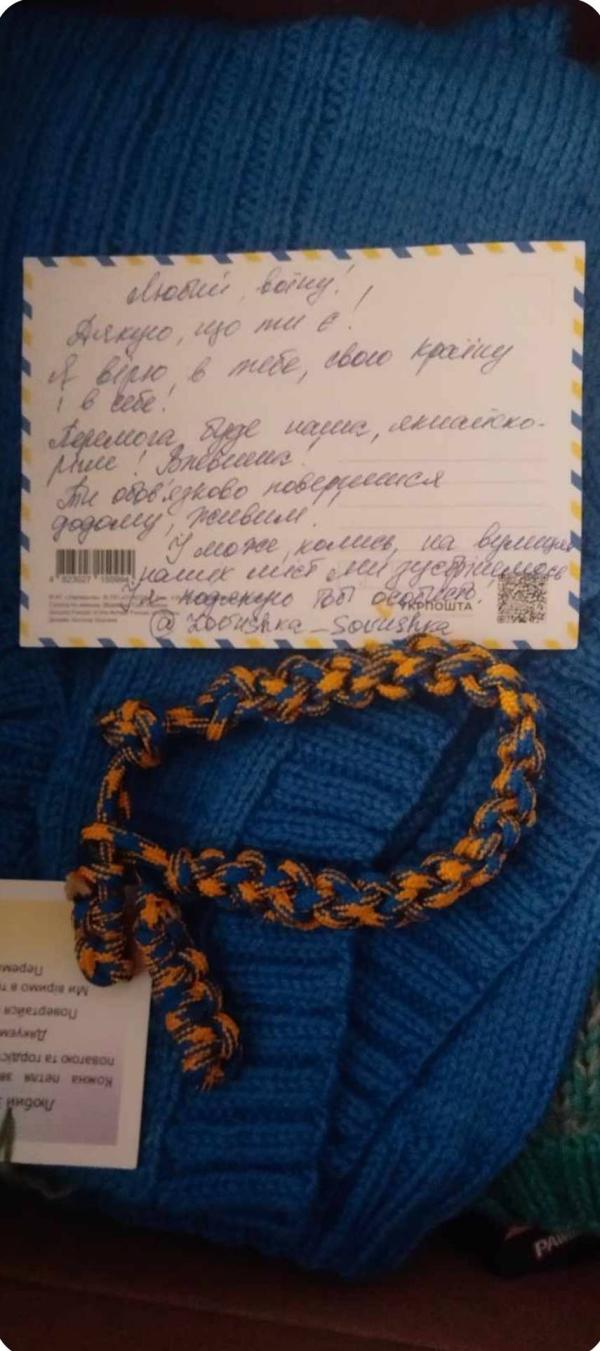 Любий, воїну!
Дякую, що ти є!
Я вірю, в тебе, свою країну
і в себе!
Перемога буде наша, якнайско-
ріше! Впевнена!
Ти обов'язково повернешся
додому, живим.
І може, колись, на вулицях
наших міст ми зустрінемось
І я подякую тобі особисто.
@ Zovushka_Sovushka
УКРПОШТА
4 823027
Любий
Кожна петля зв
повагою та гордіс
Дякуєм
Повертайся
Ми віримо в т
Перем